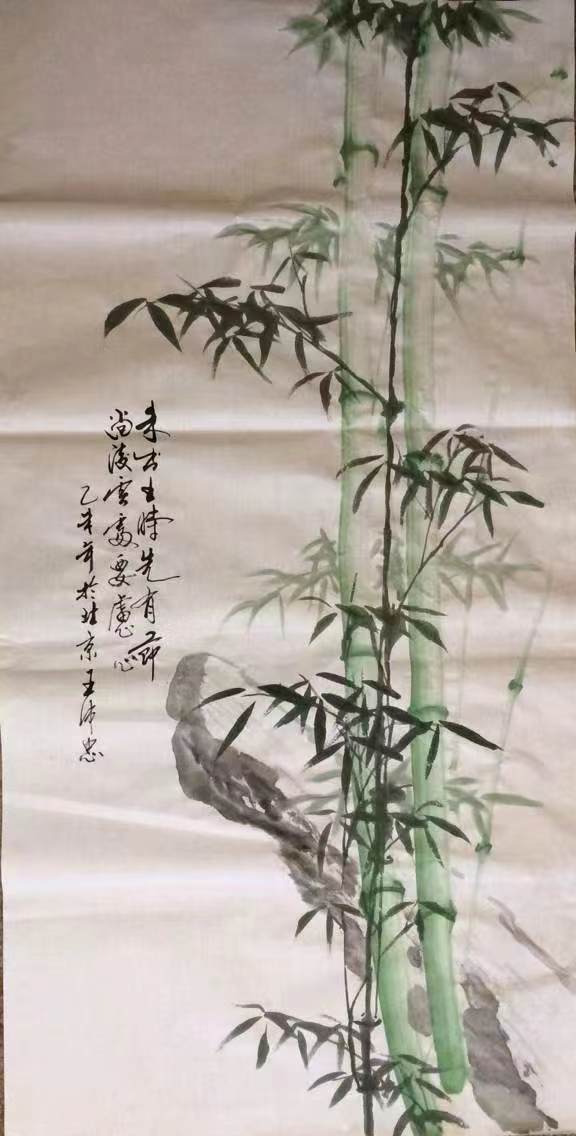 未出土時先有節
尚凌雲處要虛心
乙亥年於北京王沛忠